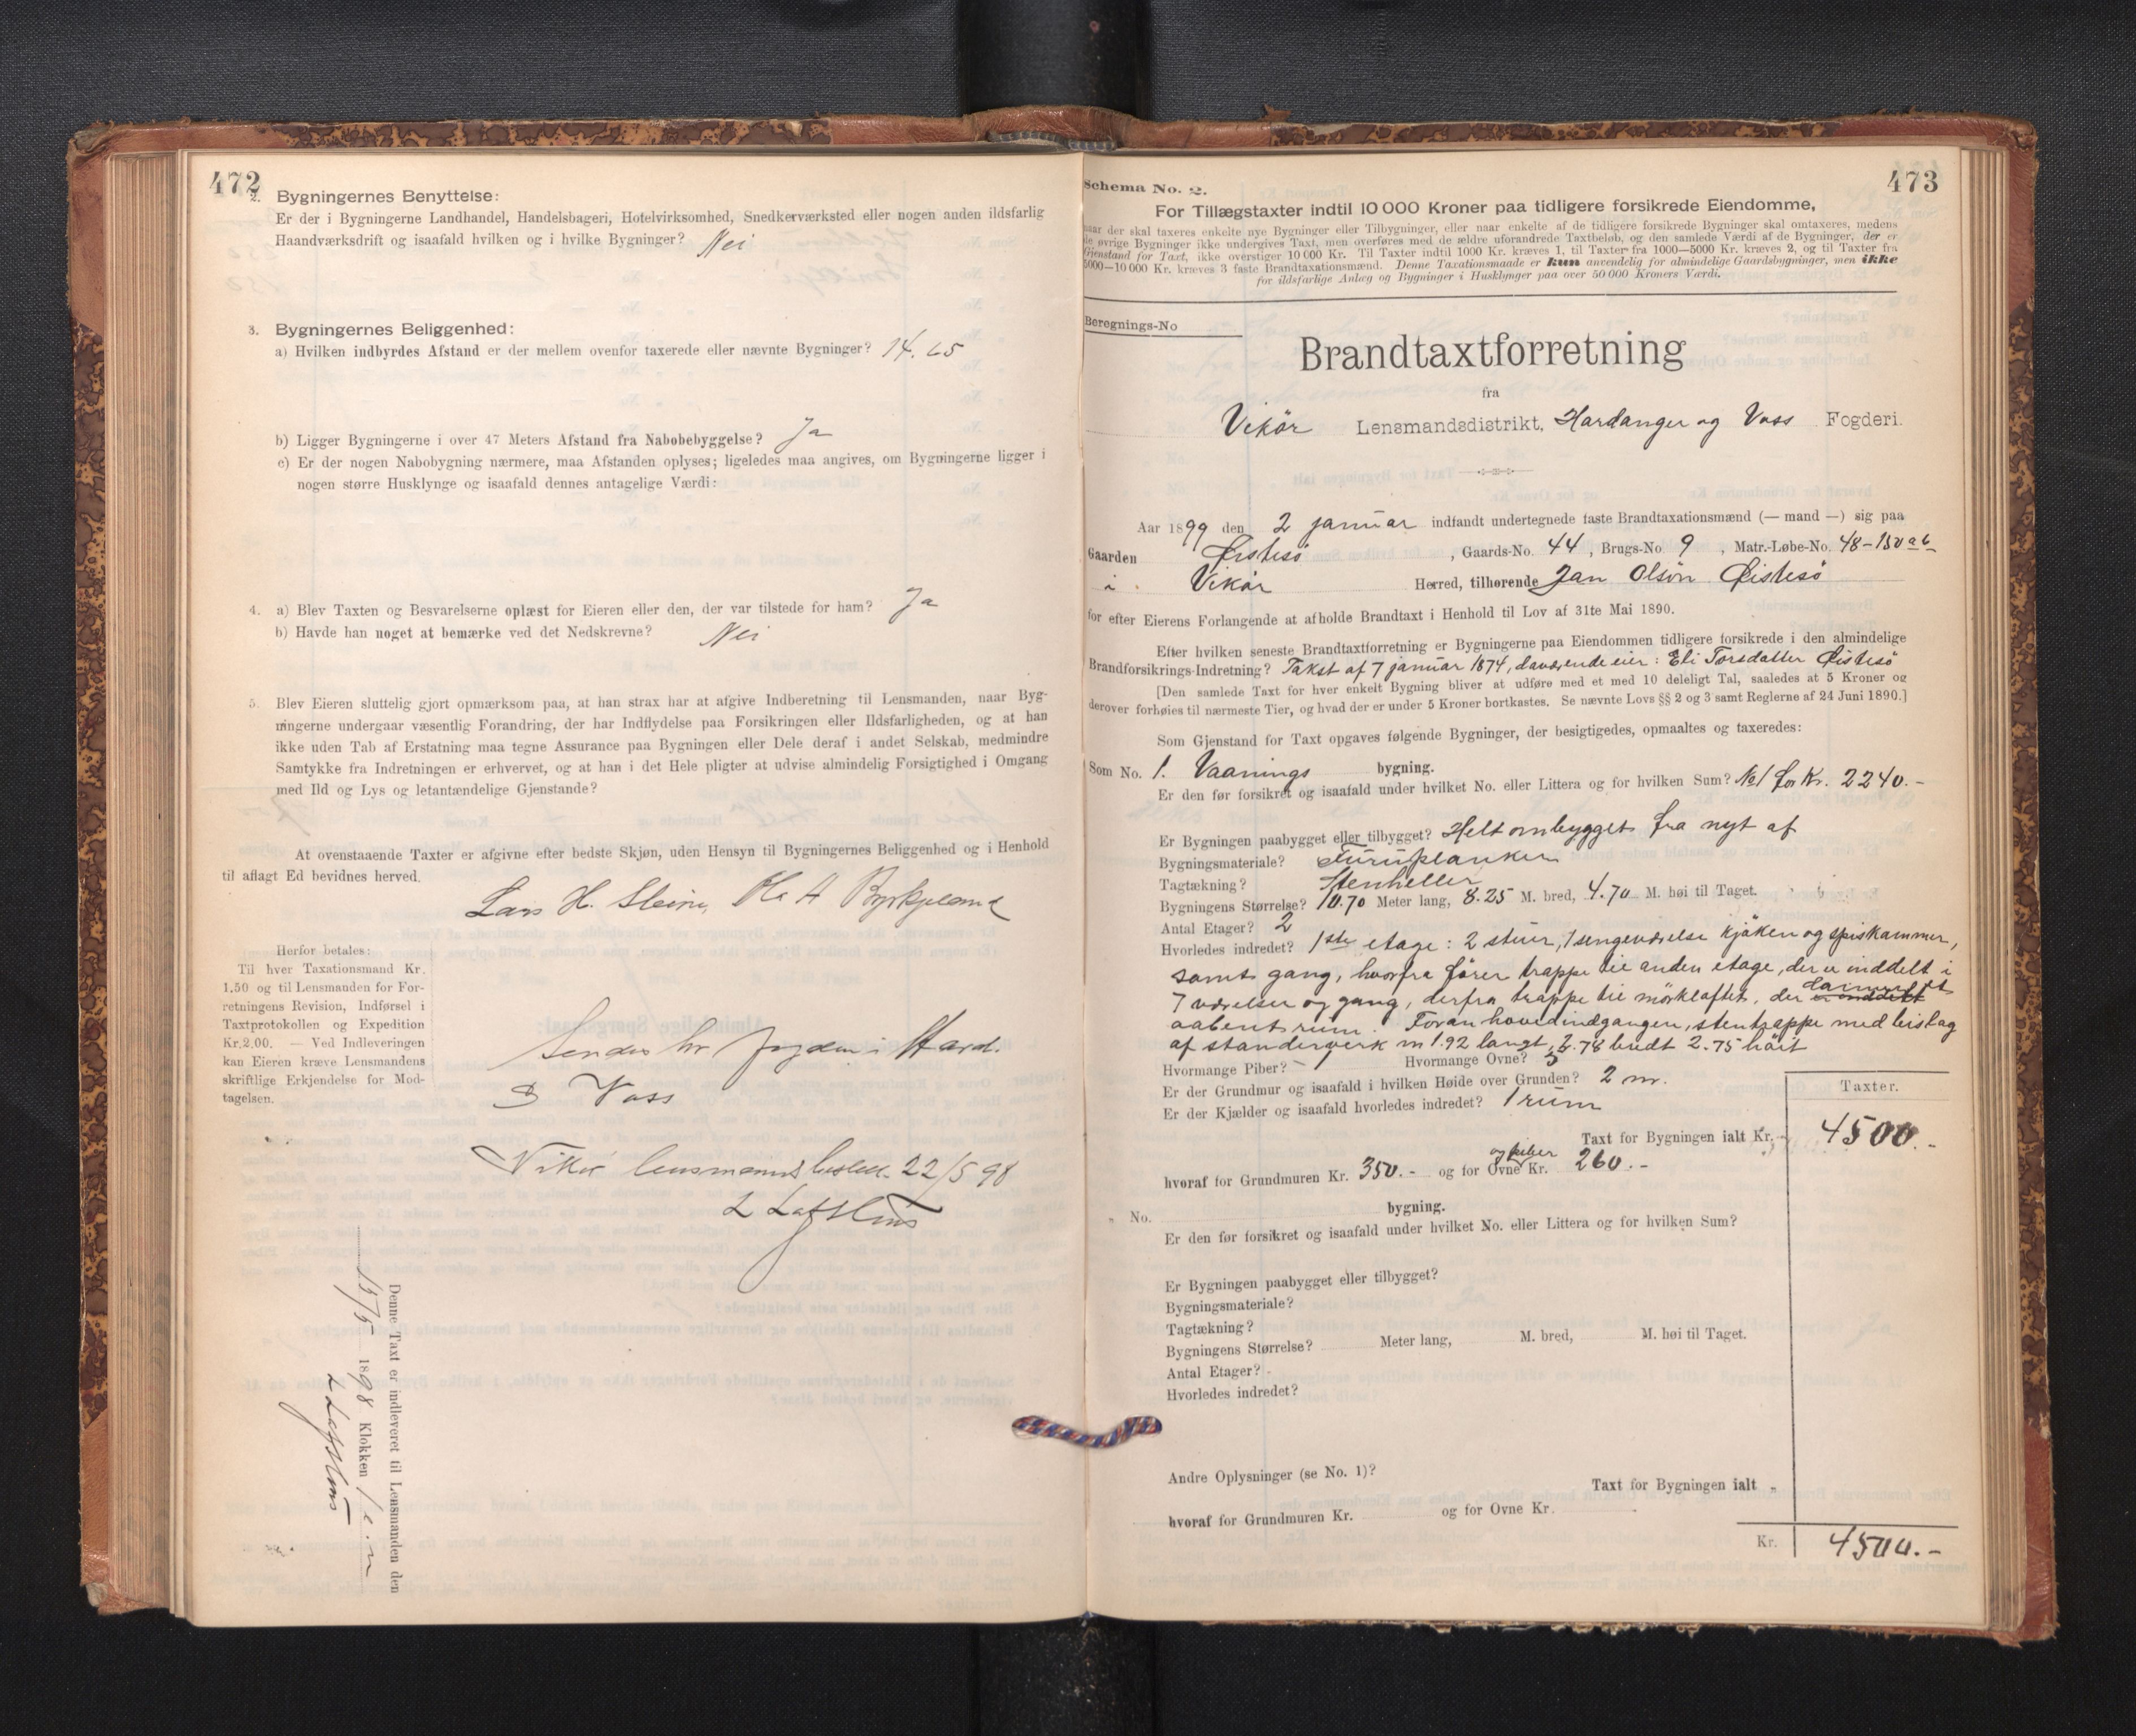 472
2. Bygningernes Benyttelse:
Er der i Bygningerne Landhandel, Handelsbageri, Hotelvirksomhed, Snedkerværksted eller nogen anden ildsfarlig
Haandværksdrift og isaafald hvilken og i hvilke Bygninger? Nei
3. Bygningernes Beliggenhed:
a) Hvilken indbyrdes Afstand er der mellem ovenfor taxerede eller nævnte Bygninger? 14.65
b) Ligger Bygningerne i over 47 Meters Afstand fra Nabobebyggelse? Ja
c) Er der nogen Nabobygning nærmere, maa Afstanden oplyses; ligeledes maa angives, om Bygningerne ligger i
nogen større Husklynge og isaafald dennes antagelige Værdi:
4. a) Blev Taxten og Besvarelserne oplæst for Eieren eller den, der var tilstede for ham? Ja
b) Havde han noget at bemærke ved det Nedskrevne? Nei
5. Blev Eieren sluttelig gjort opmærksom paa, at han strax har at afgive Indberetning til Lensmanden, naar Byg-
ningerne undergaar væsentlig Forandring, der har Indflydelse paa Forsikringen eller Ildsfarligheden, og at han
ikke uden Tab af Erstatning maa tegne Assurance paa Bygningen eller Dele deraf i andet Selskab, medmindre
Samtykke fra Indretningen er erhvervet, og at han i det Hele pligter at udvise almindelig Forsigtighed i Omgang
med Ild og Lys og letantændelige Gjenstande?
At ovenstaaende Taxter er afgivne efter bedste Skjøn, uden Hensyn til Bygningernes Beliggenhed og i Henhold
til aflagt Ed bevidnes herved.
Lars H. Steine, Ole A Byrkjeland
Herfor betales:
Til hver Taxationsmand Kr.
1,50 og til Lensmanden for For-
retningens Revision, Indførsel i
Taxtprotokollen og Expedition
Kr. 2,00. — Ved Indleveringen
kan Eieren kræve Lensmandens
skriftlige Erkjendelse for Mod-
tagelsen.
Sendes hr fogden i Hard.
& Voss
Vikør lensmannsbestill. 22/5 98
L Lofthus
Denne Taxt er indleveret til Lensmanden den
15/5 1898 Klokken 1 e.m
L Lofthus
473
Schema No. 2.
For Tillægstaxter indtil 10 000 Kroner paa tidligere forsikrede Eiendomme,
naar der skal taxeres enkelte nye Bygninger eller Tilbygninger, eller naar enkelte af de tidligere forsikrede Bygninger skal omtaxeres, medens
de øvrige Bygninger ikke undergives Taxt, men overføres med de ældre uforandrede Taxtbeløb, og den samlede Værdi af de Bygninger, der er
Gjenstand for Taxt, ikke overstiger 10 000 Kr. Til Taxter indtil 1000 Kr. kræves 1, til Taxter fra 1000—5000 Kr. kræves 2, og til Taxter fra
5000—10 000 Kr. kræves 3 faste Brandtaxationsmænd. Denne Taxationsmaade er kun anvendelig for almindelige Gaardsbygninger, men ikke
for ildsfarlige Anlæg og Bygninger i Husklynger paa over 50 000 Kroners Værdi.
Beregnings-No
Brandtaxtforretning
fra
Vikör Lensmandsdistrikt, Hardanger og Voss Fogderi.
Aar 1899 den 2 januar indfandt undertegnede faste Brandtaxationsmænd (— mand —) sig paa
Gaarden Øistesö, Gaards-No. 44, Brugs-No 9, Matr.-Løbe-No. 48-150 ab
i Vikör Herred, tilhørende Jan Olsön Øistesö
for efter Eierens Forlangende at afholde Brandtaxt i Henhold til Lov af 31te Mai 1890.
Efter hvilken seneste Brandtaxtforretning er Bygningerne paa Eiendommen tidligere forsikrede i den almindelige
Brandforsikrings-Indretning? Takst af 7 januar 1874, daværende eier: Eli Torsdatter Øistesö
[Den samlede Taxt for hver enkelt Bygning bliver at udføre med et med 10 deleligt Tal, saaledes at 5 Kroner og
derover forhøies til nærmeste Tier, og hvad der er under 5 Kroner bortkastes. Se nævnte Lovs §§ 2 og 3 samt Reglerne af 24 Juni 1890.]
Som Gjenstand for Taxt opgaves følgende Bygninger, der besigtigedes, opmaaltes og taxeredes:
Som No. 1. Vaanings bygning.
Er den før forsikret og isaafald under hvilket No. eller Littera og for hvilken Sum? No 1 for Kr. 2240.-
Er Bygningen paabygget eller tilbygget? Helt ombygget fra nyt af
Bygningsmateriale? Furuplanker
Tagtækning? Stenheller
Bygningens Størrelse? 10.70 Meter lang, 8.25 M. bred, 4.70 M. høi til Taget.
Antal Etager? 2
Hvorledes indredet? 1ste etage: 2 stuer, 1 sengeværelse kjöken og spiskammer,
samt gang, hvorfra förer trappe til anden etage, der er inddelt i
7 værelser og gang, derfra trappe til mörkloftet, der er inddelt
aabent rum. Foran hovedindgangen, stentrappe med bislag
af standerverk m 1.92 langt, 2.78 bredt 2.75 höit
Hvormange Piber? 1 Hvormange Ovne? 3
Er der Grundmur og isaafald i hvilken Høide over Grunden? 2 m.
Er der Kjælder og isaafald hvorledes indredet? 1 rum
Taxter.
Taxt for Bygningen ialt Kr. 4500.-
og piber
hvoraf for Grundmuren Kr. 350.- og for Ovne Kr. 260.-
" No. bygning.
Er den før forsikret og isaafald under hvilket No. eller Littera og for hvilken Sum?
Er Bygningen paabygget eller tilbygget?
Bygningsmateriale?
Tagtækning?
Bygningens Størrelse? Meter lang, M. bred, M. høi til Taget.
Antal Etager?
Hvorledes indredet?
Andre Oplysninger (se No. 1)?
Taxt for Bygningen ialt "
hvoraf for Grundmuren Kr. og for Ovne Kr.
Kr. 4500.-